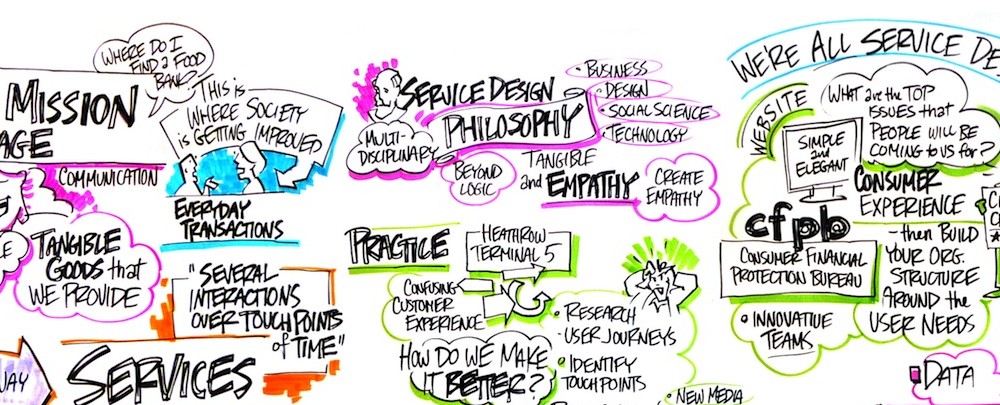 WHERE DO I
FIND a FOOD
BANK?
MISSION
AGE
THIS is
WHERE SOCIETY
is GETTING IMPROVED
COMMUNICATION
EVERYDAY
TRANSACTIONS
TANGIBLE
GOODS that
WE PROVIDE
"SEVERAL
INTERACTIONS
OVER TOUCHPOINTS
of TIME"
WAY
SERVICES
SERVICE DESIGN
PHILOSOPHY
MULTI-
DISCIPLINARY
• BUSINESS
• DESIGN
• SOCIAL SCIENCE
• TECHNOLOGY
BEYOND
LOGIC
TANGIBLE
and EMPATHY
CREATE
EMPATHY
PRACTICE
HEATHROW
TERMINAL 5
CONFUSING
CUSTOMER
EXPERIENCE
HOW DO WE MAKE
IT BETTER?
• RESEARCH
• USER JOURNEYS
• IDENTIFY
TOUCHPOINTS
• NEW MEDIA
WE'RE ALL SERVICE DE
WEBSITE
WHAT are the TOP
ISSUES that
PEOPLE WILL BE
COMING to US for?
SIMPLE
and
ELEGANT
CONSUMER
EXPERIENCE
cfpb
CONSUMER FINANCIAL
PROTECTION BUREAU
- then BUILD
YOUR ORG.
STRUCTURE
AROUND the
USER NEEDS
• INNOVATIVE
TEAMS
DATA